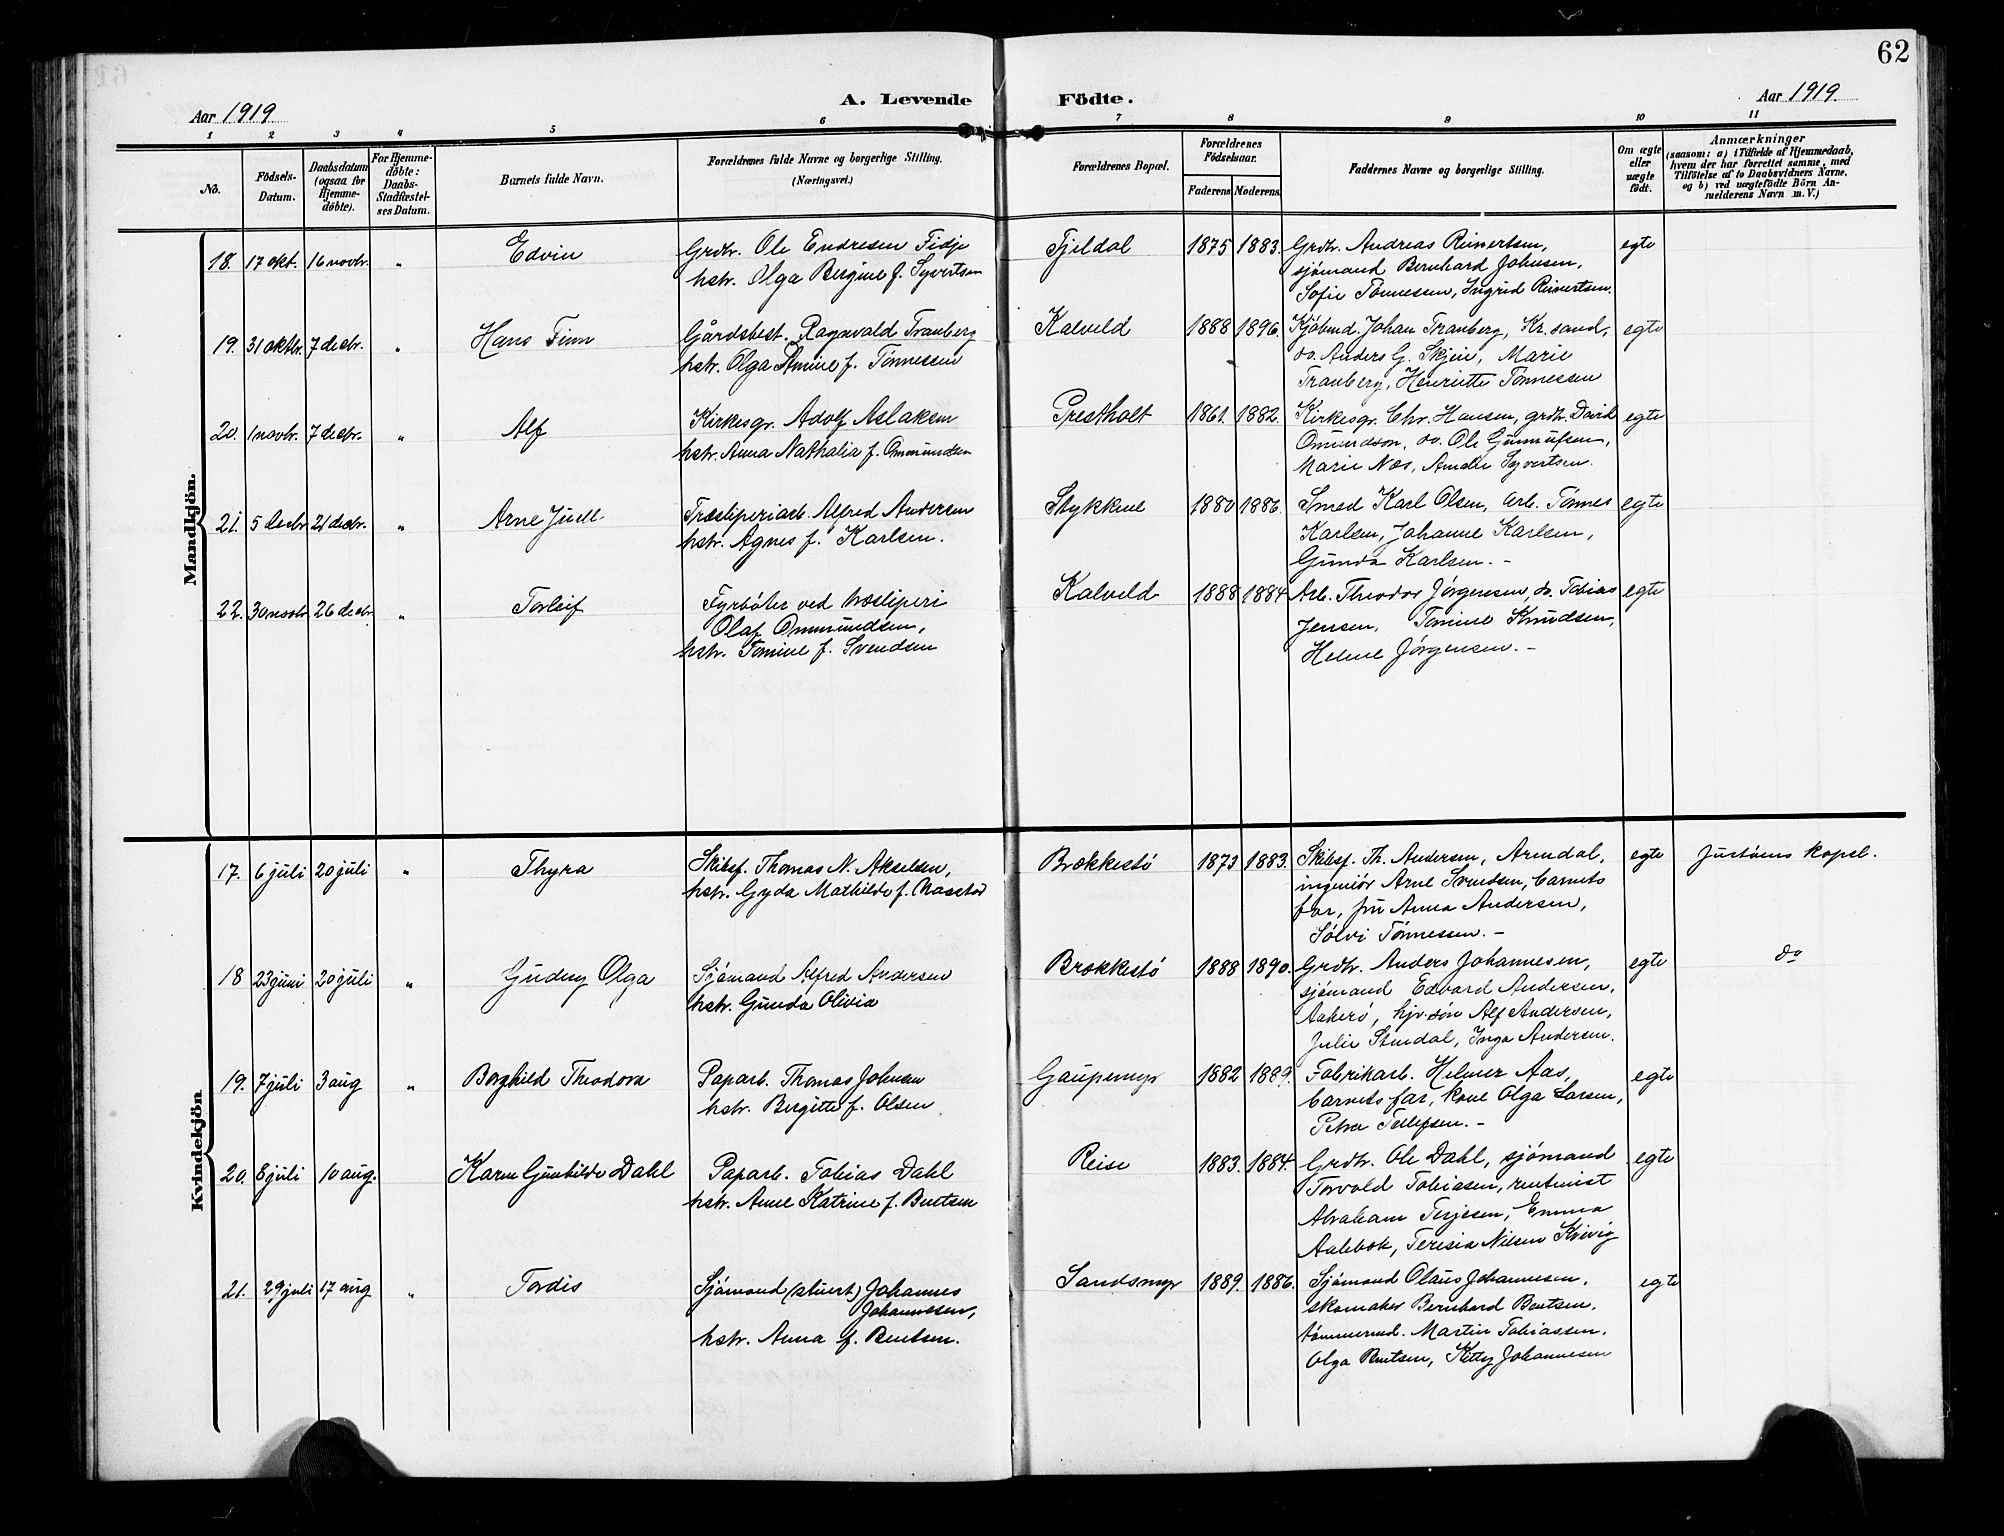 62
A. Levende Födte.
Aar 1919.
Aar 1919.
1 2 3 4 5 6 7 8 9 10 11
No.
Födsels-
Datum.
Daabsdatum
(ogsaa for
Hjemme-
döbte).
For Hjemme-
döbte:
Daabs-
Stadfæstel-
ses Datum.
Barnets fulde Navn.
Forældrenes fulde Navne og borgerlige Stilling.
(Næringsvei.)
Forældrenes Bopæl.
Forældrenes
Födselsaar.
Faderens. Moderens.
Faddernes Navne og borgerlige Stilling.
Om ægte
eller
uægte
födt.
Anmærkninger
(saasom: a) i Tilfælde af Hjemmedaab,
hvem der har forrettet samme, med
Tilföielse af to Daabsvidners Navne.
og b) ved uægtefödte Börn An-
melderens Navn m. V.)
Mandkjön.
18. 17 okt. 16 novbr. " Edvin
Grdbr. Ole Endresen Fidje
hstr. Olga Bergine f. Syvertsen
Fjeldal 1875 1883.
Grdbr. Andreas Reinertsen,
sjømand Bernhard Johnsen,
Sofie Tønnessen, Ingrid Reinertsen.
egte
19. 31 oktbr. 7 decbr. " Hans Finn
Gårdsbest. Ragnvald Tranberg
hstr. Olga Amine f. Tønnessen
Kalveld 1888 1896.
Kjøbmd. Johan Tranberg, Kr.sand,
do. Anders G. Skjeie, Marie
Tranberg, Henriette Tønnessen
egte
20. 1 novbr. 7 decbr. " Alf
Kirkesgr. Adolf Aslaksen
hstr. Anna Nathalia f. Ommundsen
Prestholt 1861. 1882.
Kirkesgr. Chr. Hansen, grdbr. David
Omundson, do. Ole Gunnufsen,
Marie Næs, Amalie Syvertsen.
egte
21. 5 decbr 21 decbr. " Arne Juell
Træsliperiarb. Alfred Andersen
hstr. Agnes f. Karlsen.
Stykkene 1880 1886.
Smed Karl Olsen, arb. Tønnes
Karlsen, Johanne Karlsen,
Gunda Karlsen. -
egte
22. 30 novbr 26 decbr " Torleif
Fyrbøter ved træsliperi
Olaf Ommundsen,
hstr. Tomine f. Svendsen
Kalveld 1888 1884
Arb. Theodor Jørgensen, do. Tobias
Jensen, Tomine Knudsen,
Helene Jørgensen. -
egte
Kvindekjön
17. 6 juli 20 juli " Thyra
Skibsf. Thomas N. Akselsen,
hstr. Gyda Mathilde f.
Brækkestø 1873 1883.
Skibsf. Th. Andersen, Arendal,
ingeniør Arne Svendsen, barnets
far, fru Anna Andersen,
Sølvi Tønnessen. -
egte Justøens kapel.
18 23 juni 20 juli " Gudny Olga
Sjømand Alfred Andersen
hstr. Gunda Olivia
Brækkestø 1888 1890.
Grdbr. Anders Johannesen,
sjømand Edvard Andersen,
Aakerø, hjv. søn Alf Andersen,
Julie Stendal, Inga Andersen.
egte do
19. 7 juli 3 aug " Borghild Theodora
Paparb. Thomas Johnsen
hstr. Bergitte f. Olsen
Gaupemyr 1882 1889.
Fabrikarb. Helmer Aas,
barnets far, kone Olga Larsen,
Petra Tellefsen. -
egte
20. 8 juli 10 aug. Karen Gunhilde Dahl
Paparb. Tobias Dahl
hstr. Anne Katrine f. Bentsen
Reise 1883. 1884.
Grdbr. Ole Dahl, sjømand
Torvald Tobiasen, rentenist
Abraham Terjesen, Emma
Aalebæk, Teresia Nilsen Kvivig
egte
21. 29 juli 17 aug " Tordis
Sjømand (stuert) Johannes
Johannesen,
hstr. Anna f. Bentsen.
Sandsmyr 1889. 1886.
Sjømand Olaus Johannesen,
skomaker Bernhard Bentsen,
tømmermd. Martin Tobiassen,
Olga Bentsen, Kitty Johannesen
egte